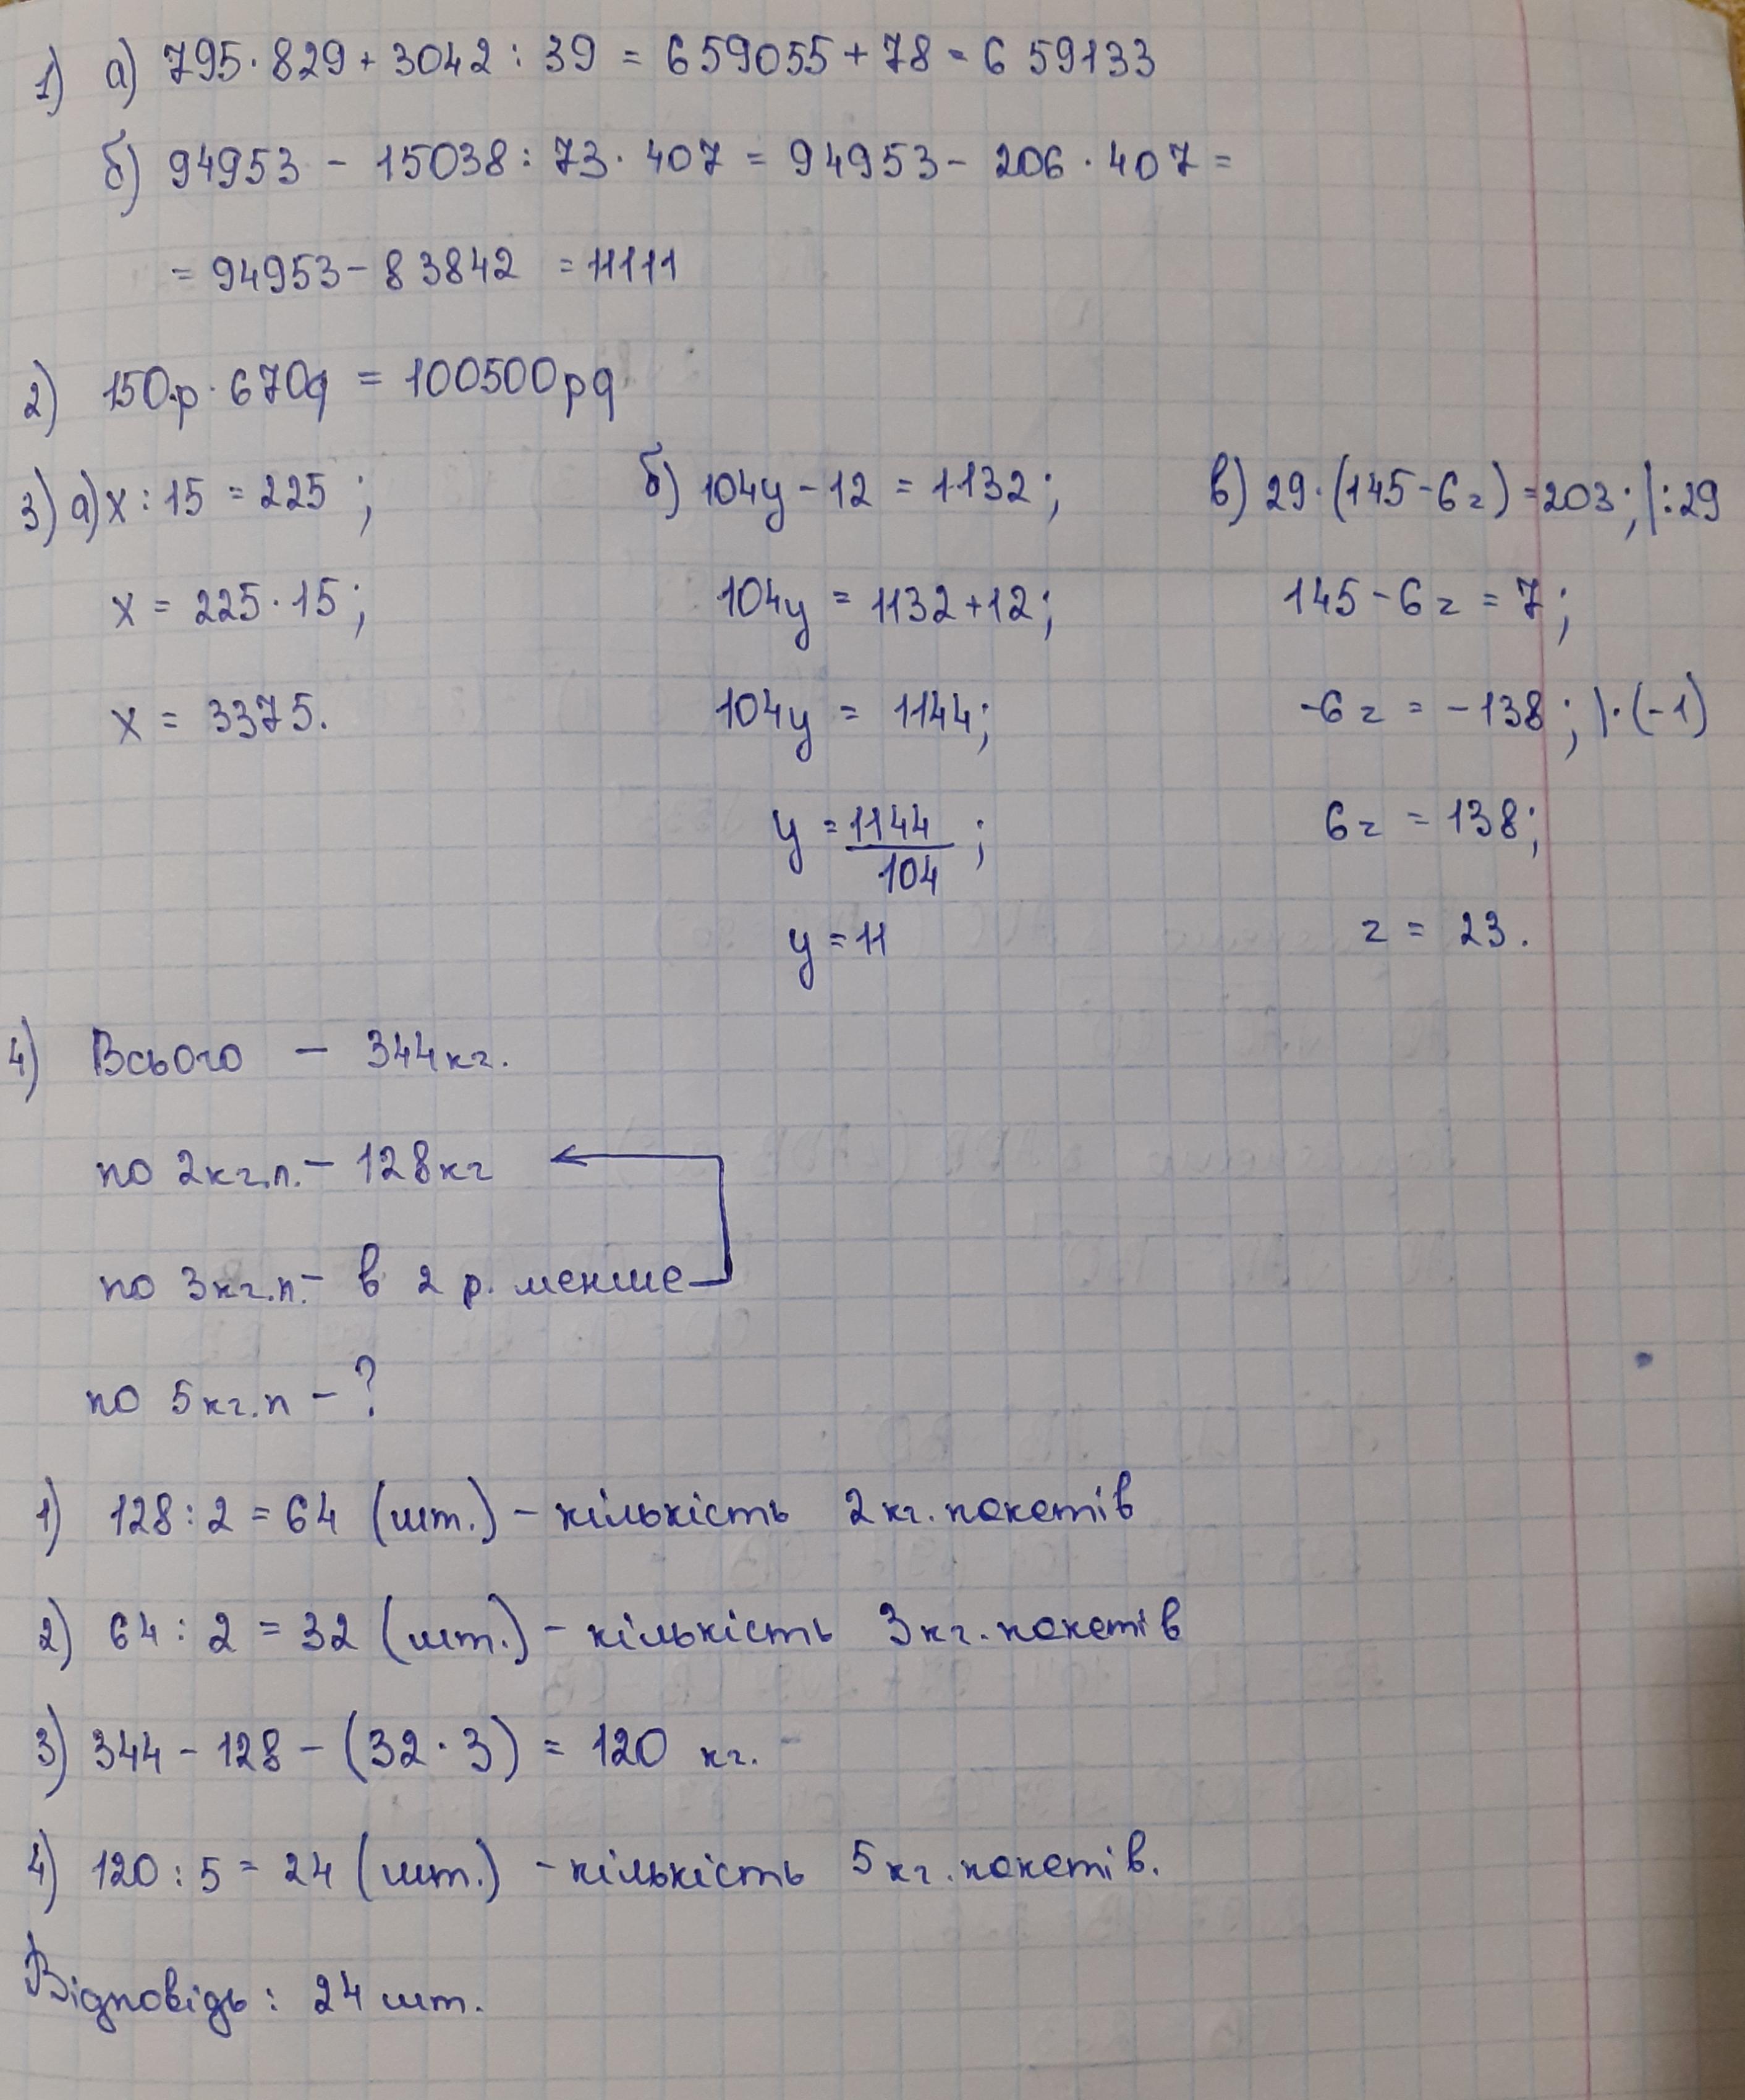 1) а) 795·829+3042:39 = 659055+78 = 659133
б) 94953 - 15038:73·407 = 94953 - 206·407 =
= 94953 - 83842 = 11111
2) 150p·670q = 100500pq
3) а) x:15 = 225; б) 104y - 12 = 1132; в) 29·(145-6z) = 203; |:29
x = 225·15; 104y = 1132+12; 145-6z = 7;
x = 3375. 104y = 1144; -6z = -138; |·(-1)
y = 1144/104; 6z = 138;
y = 11 z = 23.
4) Всього - 344кг.
по 2кг.п. - 128кг
по 3кг.п. - в 2 р. менше
по 5кг.п - ?
1) 128:2 = 64 (шт.) - кількість 2кг. пакетів
2) 64:2 = 32 (шт.) - кількість 3кг. пакетів
3) 344 - 128 - (32·3) = 120 кг. -
4) 120:5 = 24 (шт.) - кількість 5кг. пакетів.
Відповідь: 24 шт.